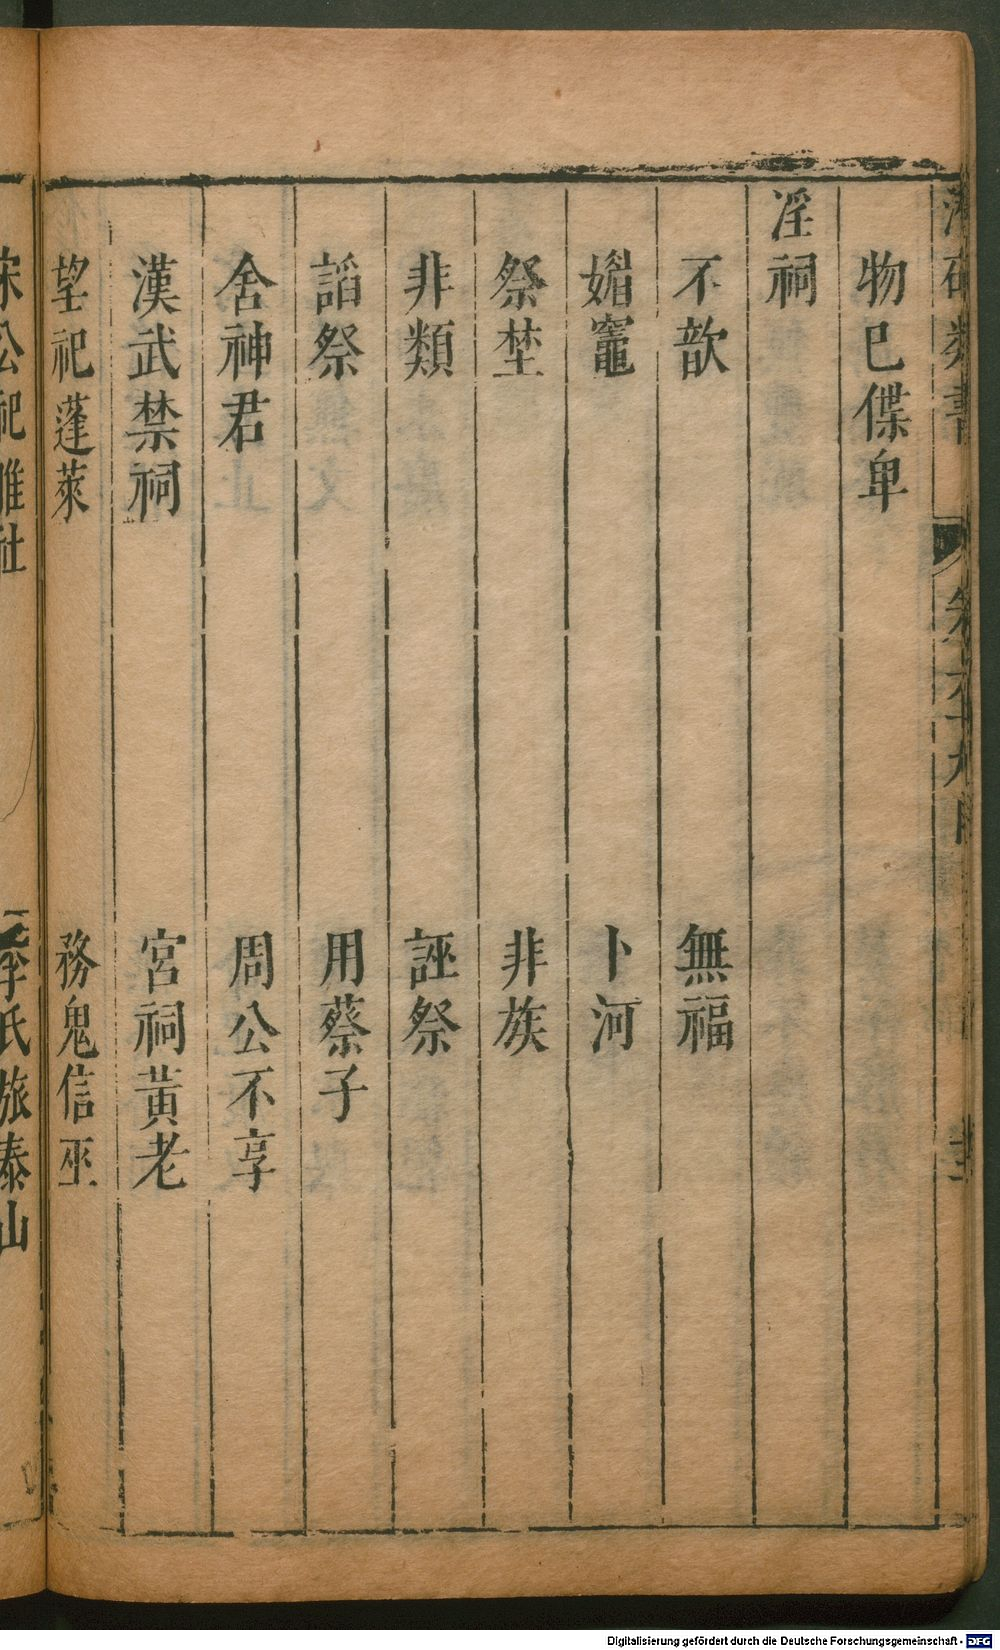 物已偞卑
淫祠
不歆　無福
媚竈　卜河
祭埜　非族
非類　誣祭
謟祭　用蔡子
舍神君　周公不享
漢武禁祠　宮祠黃老
望祀蓬萊　務鬼信巫
公祀雎社　季氏旅泰山
Digitalisierung gefördert durch die Deutsche Forschungsgemeinschaft - DFG